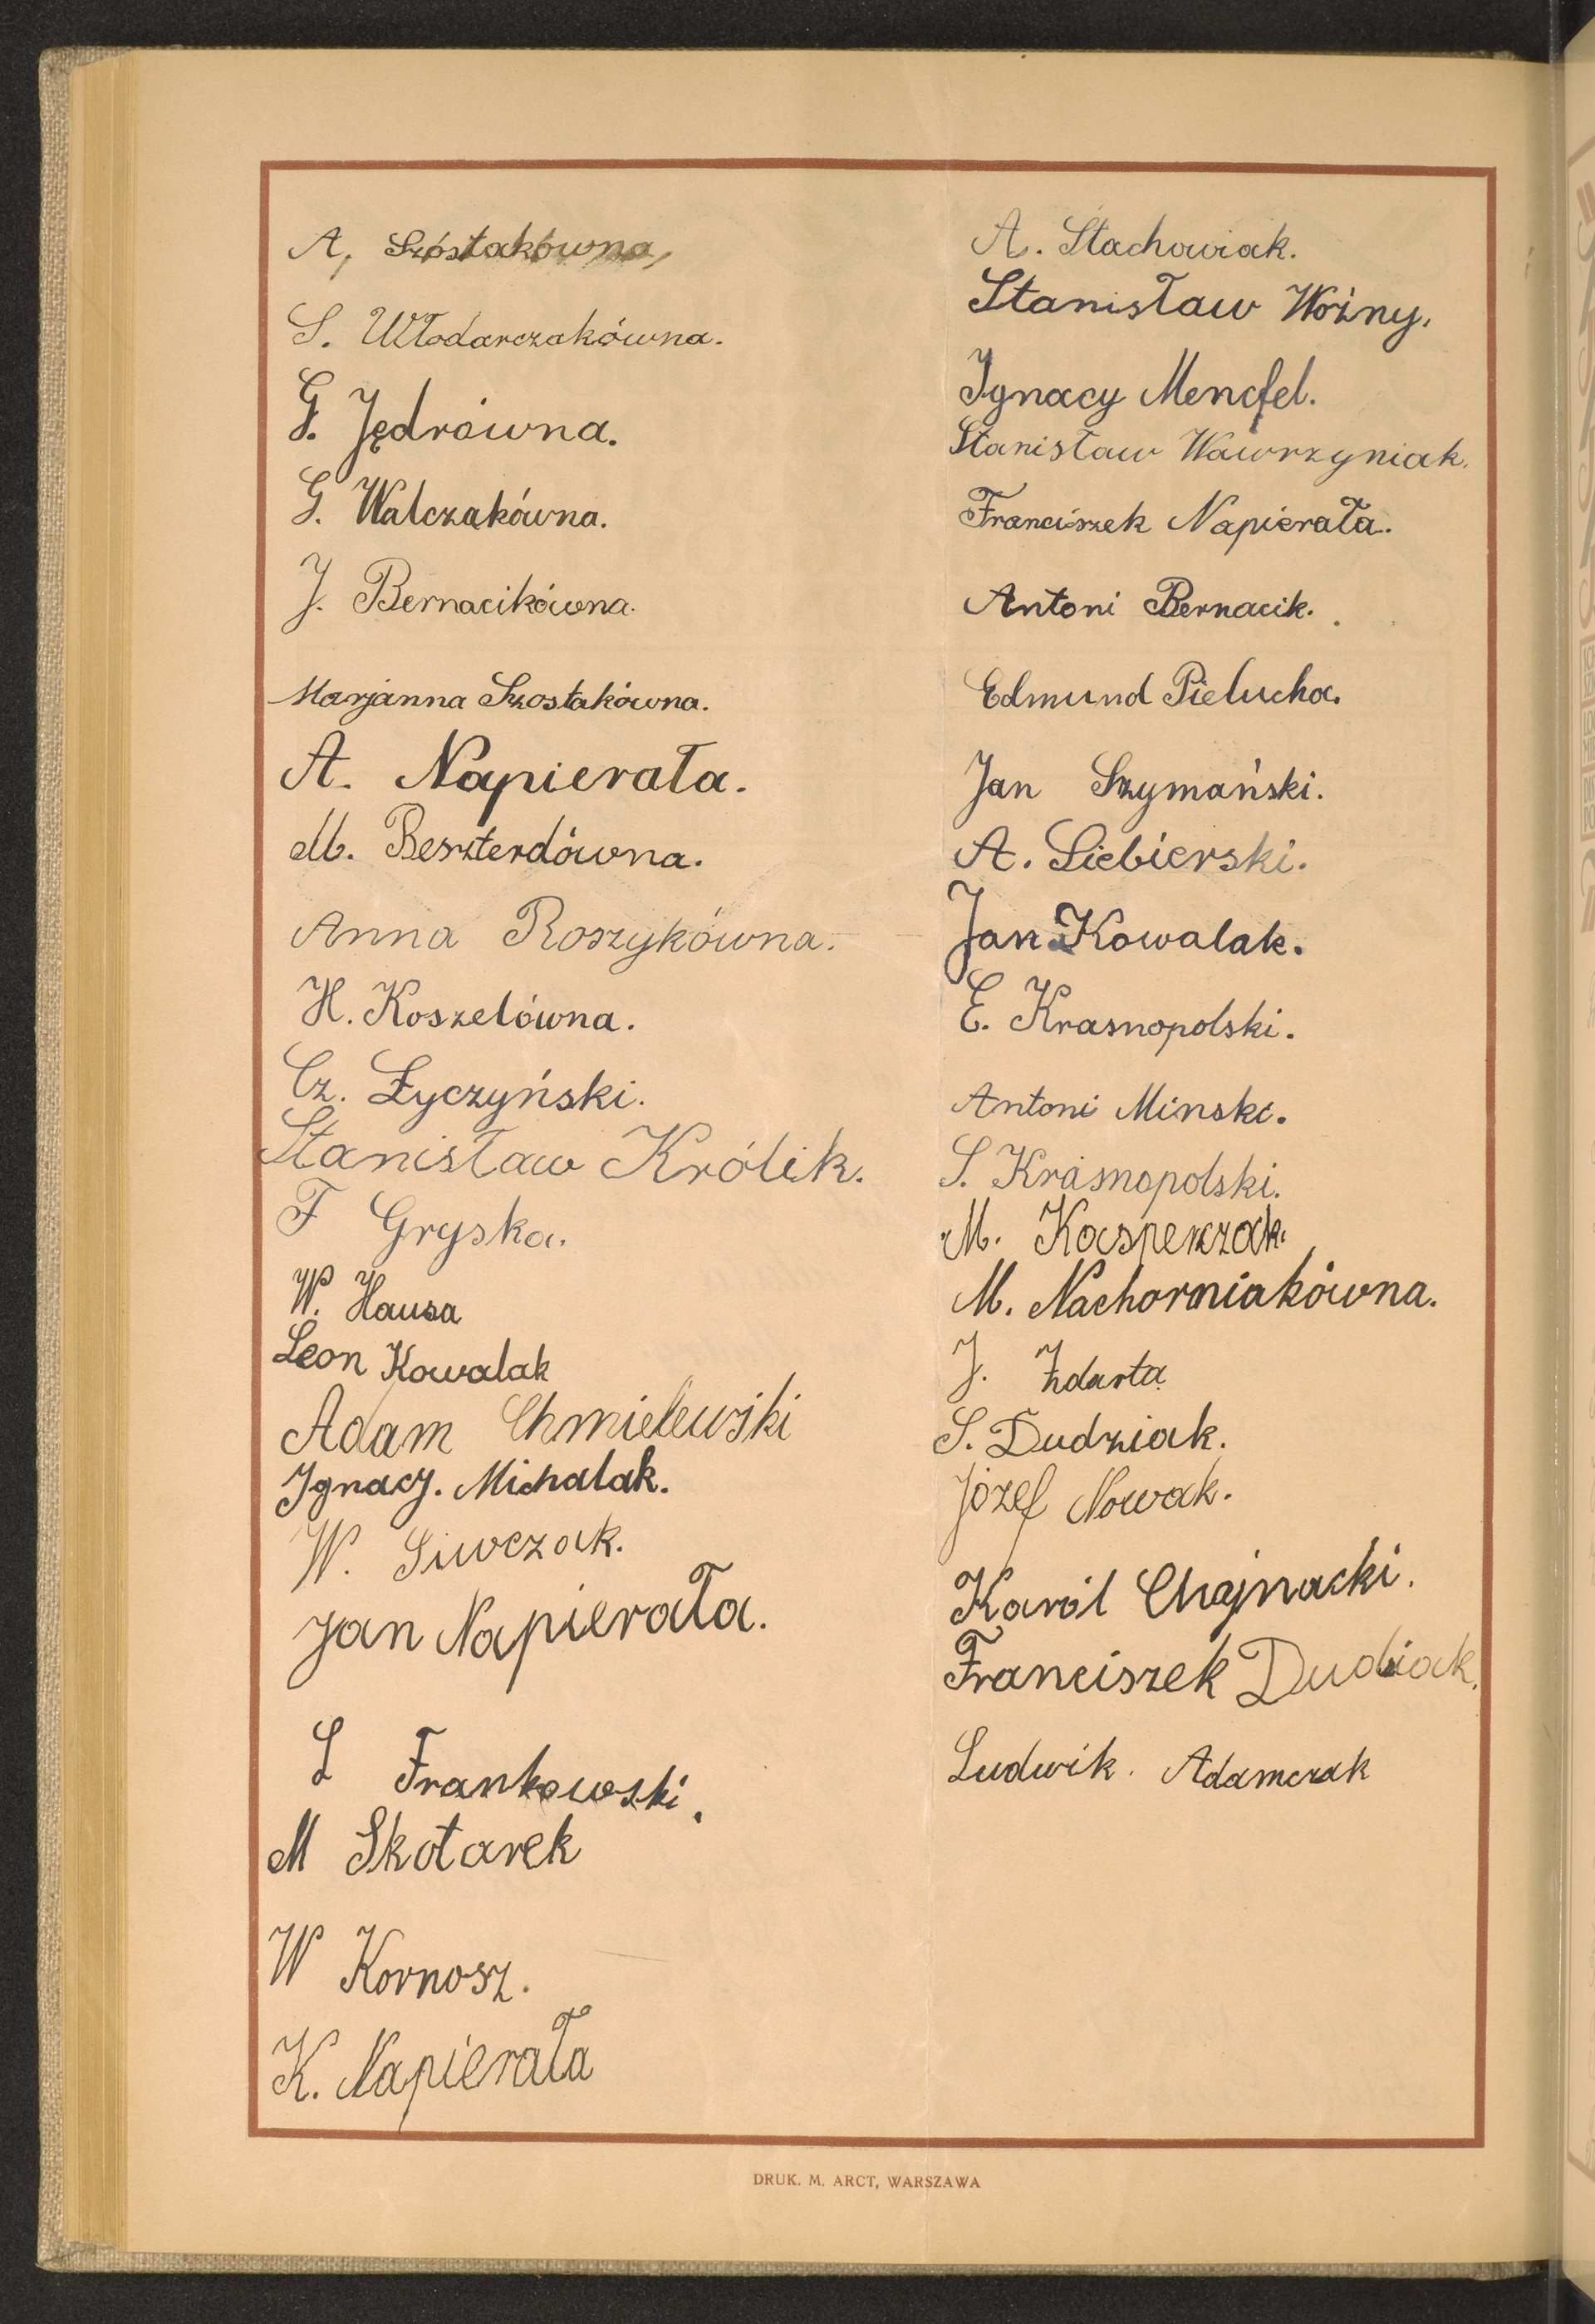 A, Szóstakówna,
S. Włodarczakówna.
G. Jędrówna.
G. Walczakówna.
J. Bernacikówna.
Marjanna Szostakówna.
A. Napierała.
M. Beszterdówna.
Anna Roszykówna.
H. Koszelówna.
Cz. Łyczyński.
Stanisław Królik.
F Gryska.
W. Hausa
Leon Kowalak
Adam Chmielewski
Ignacy. Michalak.
W. Siwczak.
Jan Napierała.
S Frankowski.
M Skotarek
W Kornosz.
K. Napierała
A. Stachowiak.
Stanisław Woźny.
Ignacy Mencfel.
Stanisław Wawrzyniak.
Franciszek Napierała.
Antoni Bernacik.
Edmund Pielucha.
Jan Szymański.
A. Siebierski.
Jan Kowalak.
E. Krasnopolski.
Antoni Minski.
S. Krasnopolski.
M. Kasperczak.
M. Nachorniakówna.
J. Zdarta
S. Dudziak.
Józef Nowak.
Karól Chojnacki.
Franciszek Dudziak.
Ludwik. Adamczak
DRUK. M. ARCT, WARSZAWA